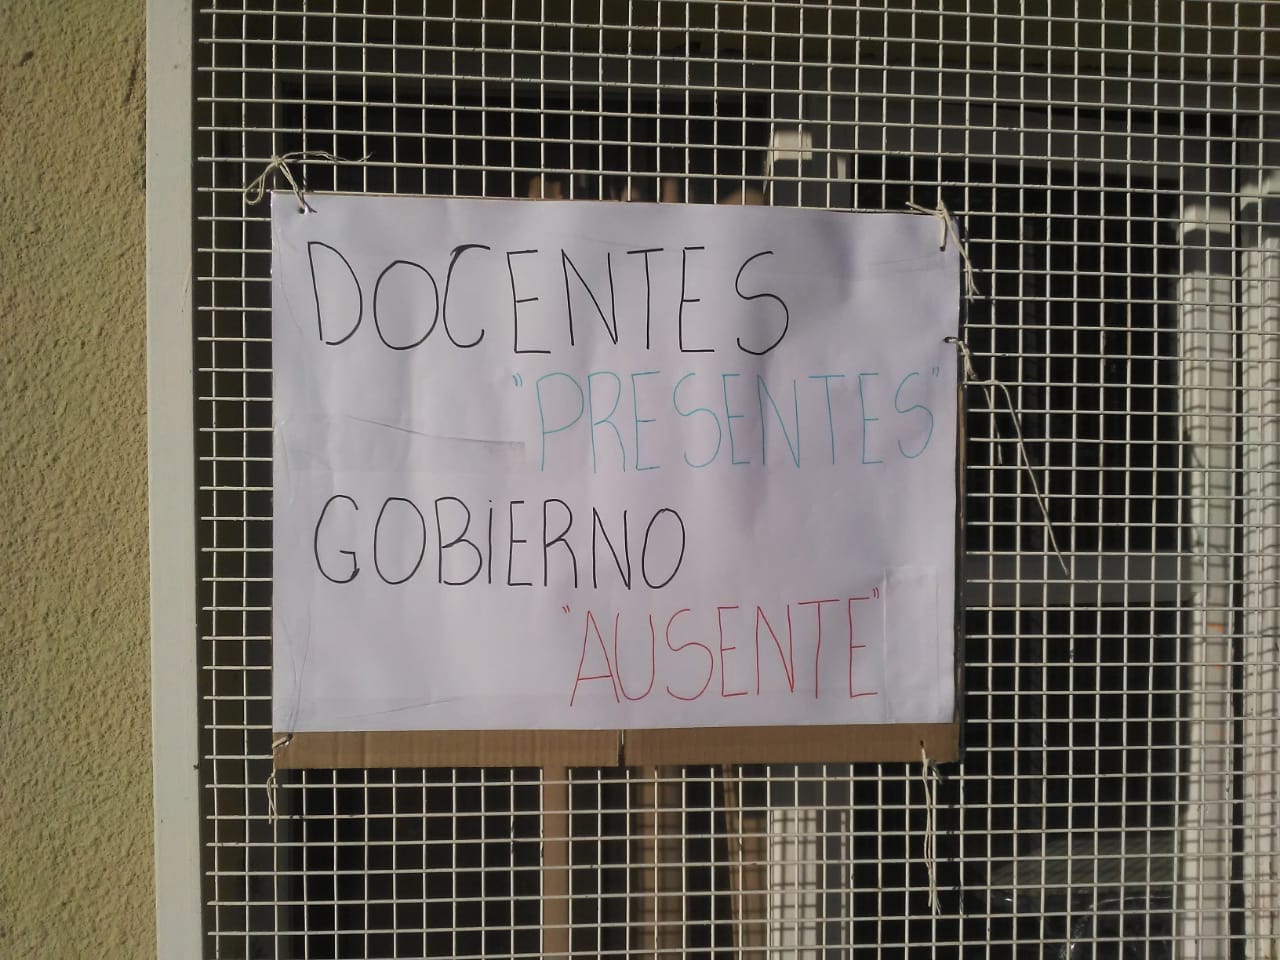 DOCENTES
"PRESENTES"
GOBiERNO
"AUSENTE"